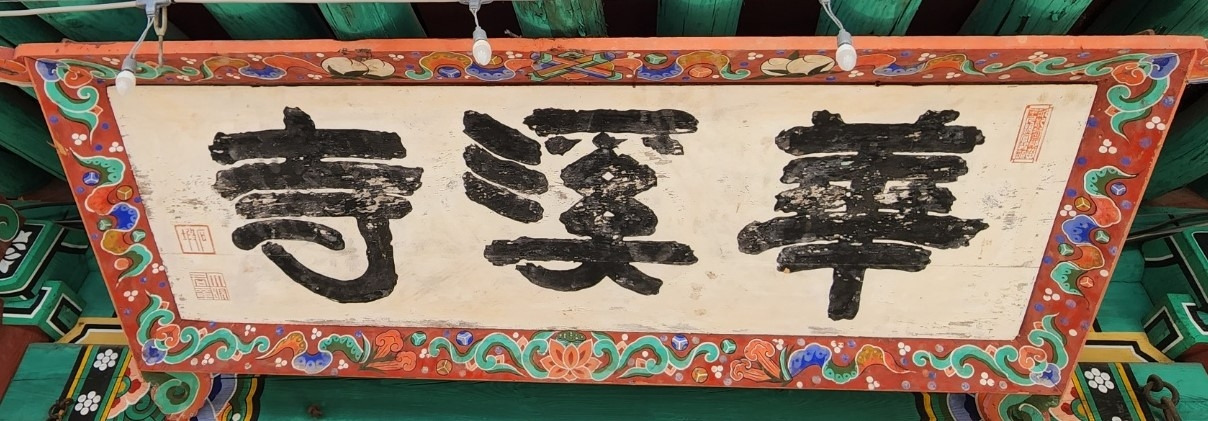 華溪寺